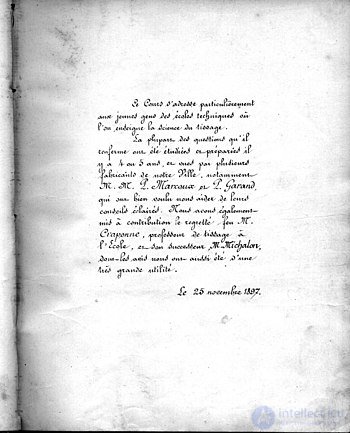 Ce Cours s'adresse particulièrement
aux jeunes gens des écoles techniques où
l'on enseigne la science du tissage.
La plupart des questions qu'il
renferme ont été étudiées et préparées il
y a 4 ou 5 ans, et vues par plusieurs
fabricants de notre Ville, notamment
M. M. P. Marcoux et P. Garand,
qui ont bien voulu nous aider de leurs
conseils éclairés. Nous avons également
mis à contribution le regretté feu M.
Craponne, professeur de tissage à
l'École, et son successeur M. Michalon,
dont les avis nous ont aussi été d'une
très grande utilité.
Le 25 novembre 1897.
intellect.icu